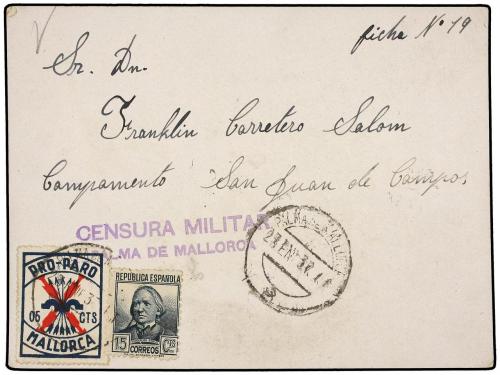 ficha Nº 19
Sr. Dn.
Franklin Carretero Salom
Campamento San Juan de Campos
CENSURA MILITAR
PALMA DE MALLORCA
PRO-PARO
05 CTS
MALLORCA
REPUBLICA ESPAÑOLA
15 Cts
CORREOS